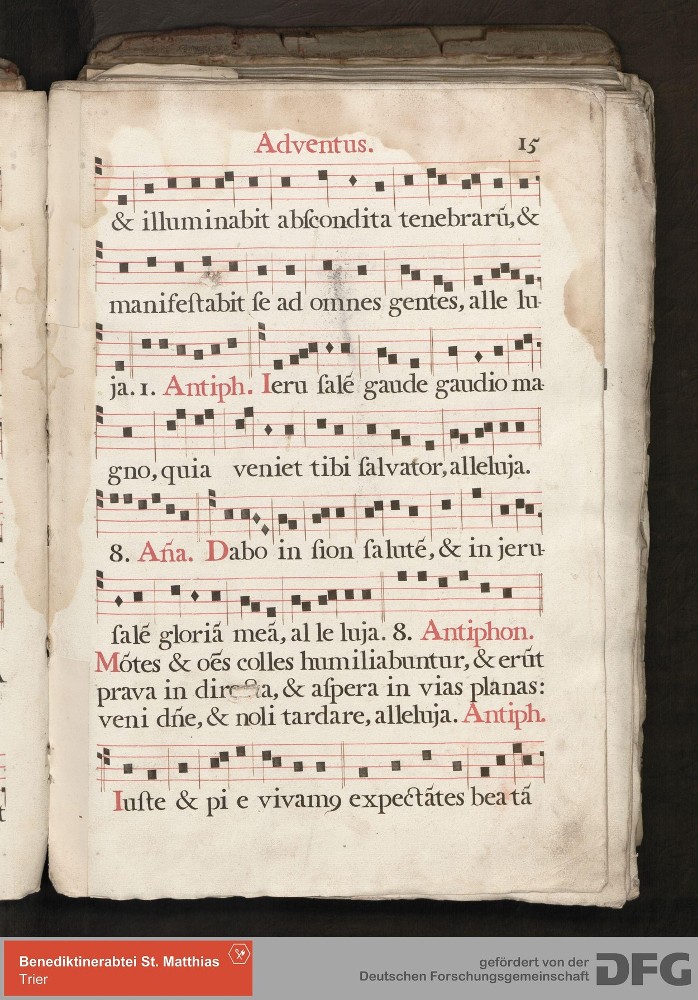 Adventus. 15
& illuminabit abſcondita tenebrarū, &
manifeſtabit ſe ad omnes gentes, alle lu-
ja. 1. Antiph. Ieru ſalē gaude gaudio ma-
gno, quia veniet tibi ſalvator, alleluja.
8. Aña. Dabo in ſion ſalutē, & in jeru-
ſalē gloriā meā, al le luja. 8. Antiphon.
Mōtes & oēs colles humiliabuntur, & erūt
prava in directa, & aſpera in vias planas:
veni dñe, & noli tardare, alleluja. Antiph.
Iuſte & pi e vivamꝯ expectātes bea tā
Benediktinerabtei St. Matthias
Trier
gefördert von der
Deutschen Forschungsgemeinschaft DFG